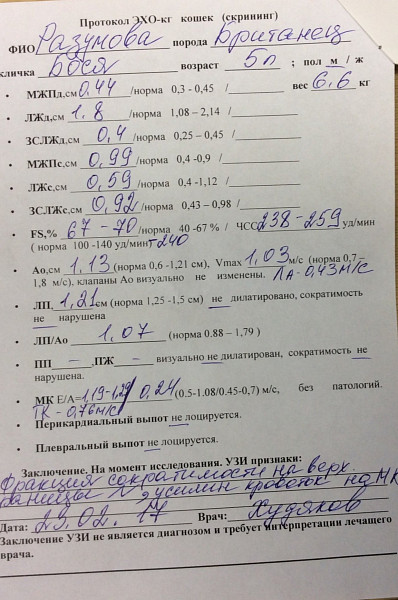 Протокол ЭХО-кг кошек (скрининг)
ФИО Разумова порода Британец ,
кличка Бося возраст 5л ; пол м / ж
• МЖПд,см 0,44 /норма 0,3 - 0,45 / вес 6,6 кг
• ЛЖд,см 1,8 /норма 1,08 – 2,14 /
• ЗСЛЖд,см 0,4 /норма 0,25 – 0,45 /
• МЖПс,см 0,99 /норма 0,4 -0,9 /
• ЛЖс,см 0,59 /норма 0,4 -1,12 /
• ЗСЛЖс,см 0,92 /норма 0,43 – 0,98 /
• FS,% 67 - 70 /норма 40 -67 % / ЧСС 238 - 259 уд/мин
( норма 100 -140 уд/мин т240
• Ао,см 1,13 (норма 0,6 -1,21 см), Vmax 1,03 м/с (норма 0,7 –
1,8 м/с), клапаны Ао визуально не изменены. ЛА - 0,43 м/с
• ЛП, 1,21 см (норма 1,25 -1,5 см) не дилатировано, сократимость
не нарушена
• ЛП/Ао 1,07 (норма 0.88 – 1,79 )
• ПП – ,ПЖ – визуально не дилатирован, сократимость не
нарушена.
• МК Е/А= 1,19-1,29/ 0,24 (0.5-1.08/0.45-0,7) м/с, без патологий.
ТК - 0,76 м/с
• Перикардиальный выпот не лоцируется.
• Плевральный выпот не лоцируется.
Заключение. На момент исследования. УЗИ признаки:
Фракция сократимости на верх.
границы N, усилин кровоток на МК
Дата: 23.02.17 Врач: Худяков
Заключение УЗИ не является диагнозом и требует интерпретации лечащего
врача.